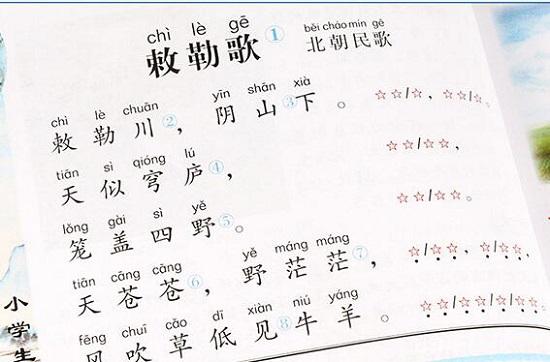 chì lè gē
敕勒歌①
běi cháo mín gē
北朝民歌
chì lè chuān yīn shān xià
敕勒川②，阴山③下。 ☆☆/☆，☆☆/☆。
tiān sì qióng lú
天似穹庐④， ☆☆/☆☆，
lǒng gài sì yě
笼盖四野⑤。 ☆☆/☆☆。
tiān cāng cāng yě máng máng
天苍苍⑥，野茫茫⑦， ☆/☆☆，☆/☆☆，
fēng chuī cǎo dī xiàn niú yáng
风吹草低见⑧牛羊。 ☆☆/☆☆/☆☆☆。
小学生